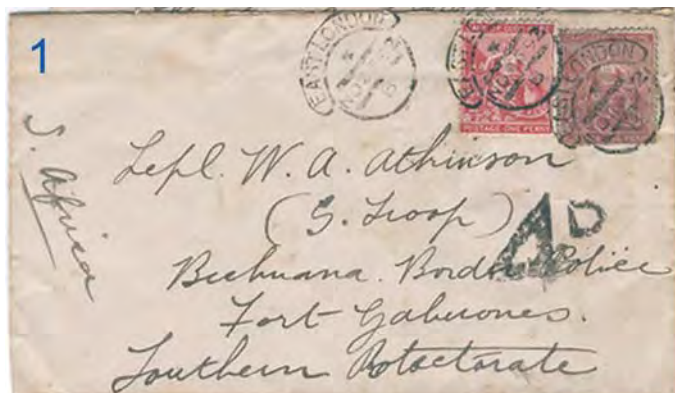 1
EAST LONDON
EAST LONDON
POSTAGE ONE PENNY
S. Africa
Lcpl. W. A. Atkinson
(G. Troop)
AD
Bechuana. Border Police
Fort Gaberones.
Southern Protectorate